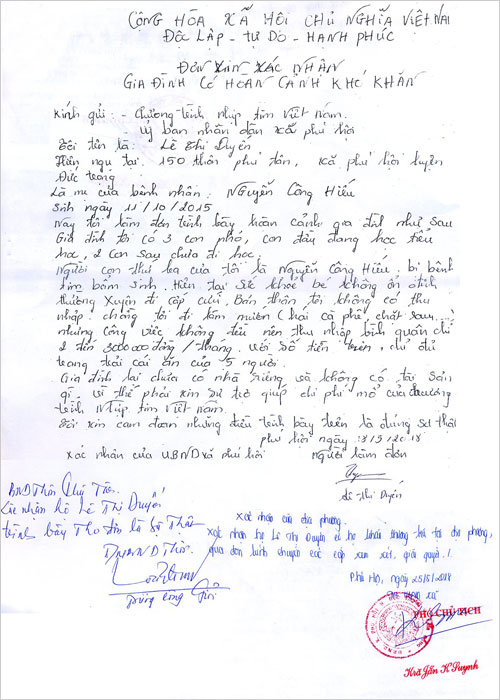 CỘNG HÒA XÃ HỘI CHỦ NGHĨA VIỆT NAM
ĐỘC LẬP - TỰ DO - HẠNH PHÚC
ĐƠN XIN XÁC NHẬN
GIA ĐÌNH CÓ HOÀN CẢNH KHÓ KHĂN
Kính gửi: - Chương trình nhịp tim Việt Nam.
Uỷ ban nhân dân xã phú hội
Tôi tên là: Lê Thị Duyên
Hiện ngụ tại: 150 thôn phú tân, xã phú hội huyện
Đức trọng
Là mẹ của bệnh nhân: NGuyễn Công Hiếu
Sinh ngày 11/10/2015
Nay tôi làm đơn trình bày hoàn cảnh gia đình như sau
Gia đình tôi có 3 con nhỏ, con đầu đang học tiểu
học, 2 con sau chưa đi học.
Người con thứ ba của tôi là Nguyễn Công Hiếu, bị bệnh
tim bẩm sinh. Hiện tại sức khỏe bé không ổn định
thường xuyên đi cấp cứu. Bản thân tôi không có thu
nhập, chồng tôi đi làm mướn (hái cà phê, chặt
nhưng công việc không đều nên thu nhập bình quân chỉ
2 đến 3000000 đồng/tháng. với số tiền trên, chỉ đủ
trang trải cái ăn của 5 người.
Gia đình lại chưa có nhà riêng và không có tài sản
gì vì thế phải xin sự trợ giúp chi phí mổ của chương
trình Nhịp tim Việt Nam.
Tôi xin cam đoan những điều trình bày trên là đúng sự thật
phú hội ngày 2018
xác nhận của UBND xã phú hội người làm đơn
Lê thị Duyên
BND Thôn Phú Tân.
Xác nhận hộ Lê Thị Duyên
trình bày Theo đơn là sự Thật
xác nhận của địa phương.
xác nhận bà Lê Thị Duyên có hộ khẩu thường trú tại địa phương,
chuyển các cấp xem xét, giải quyết./.
Phú Hội, ngày 2018
TM UBND XÃ
PHÓ CHỦ TỊCH
Kră Jẫn K'Suynh